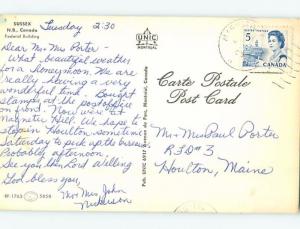 SUSSEX
N.B., Canada
Federal Building
Tuesday 2:30
Dear Mr Mrs Porter -
What beautiful weather
for a honeymoon. We are
really having a very
wonderful time. Bought
stamps at the postoffice
on front. Now were at
Magnetic Hill. We hope to
stop in Houlton sometime
Saturday to pick up the bureau
Probably afternoon,
See you then Lord Willing
God bless you,
Mr + Mrs John
Nickerson
6P-1763 5058
UNIC
MONTREAL
Carte Postale
Post Card
5
CANADA
Mr + Mrs Paul Porter
RFD #3
Houlton, Maine